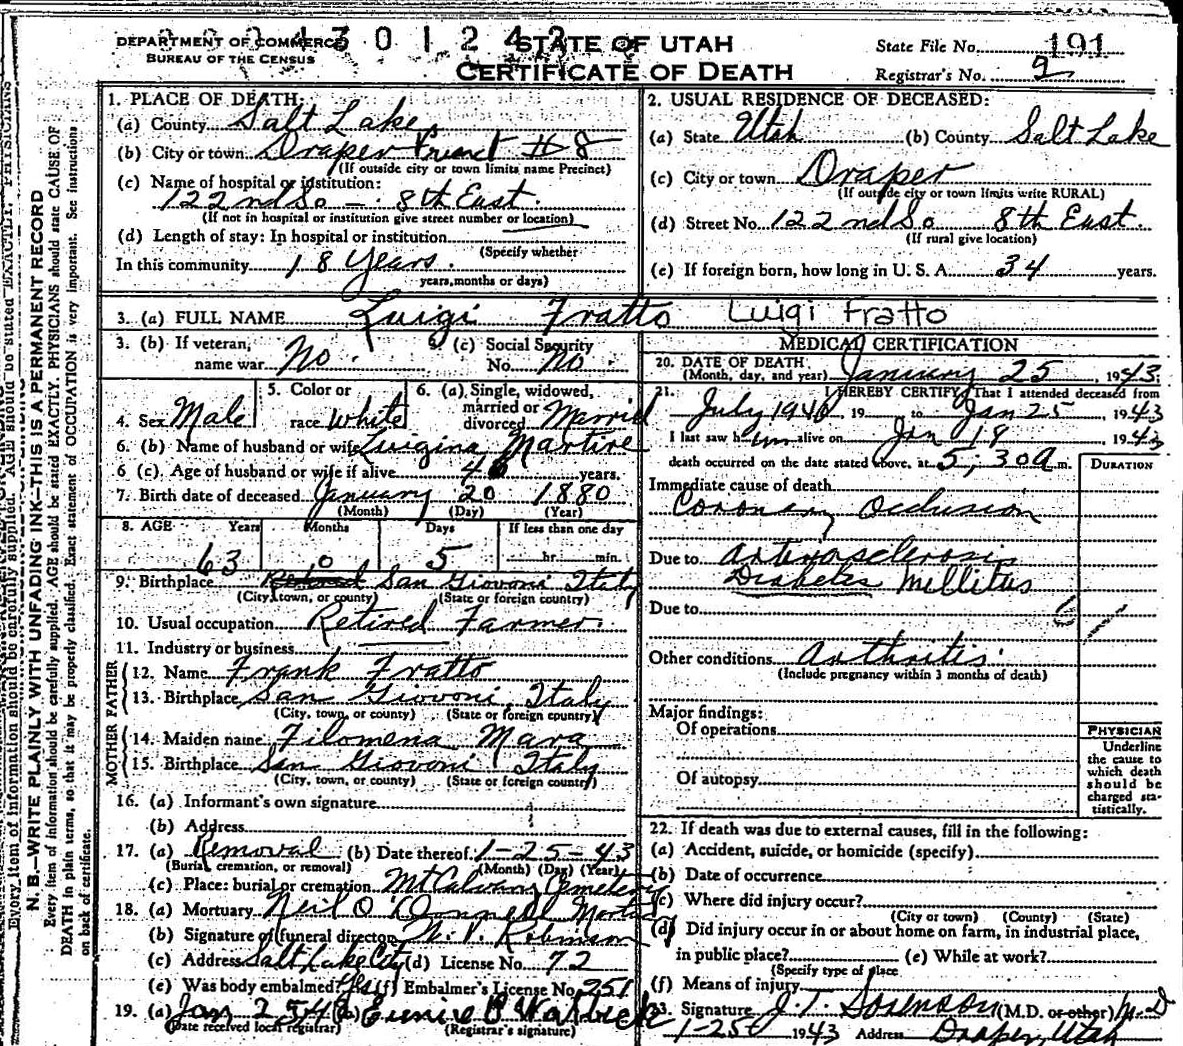 DEPARTMENT OF COMMERCE
BUREAU OF THE CENSUS
430124
STATE OF UTAH
CERTIFICATE OF DEATH
State File No. 191
Registrar's No. 2
N. B.—WRITE PLAINLY WITH UNFADING INK—THIS IS A PERMANENT RECORD
Every item of information should be carefully supplied. AGE should be stated EXACTLY. PHYSICIANS should state CAUSE OF
DEATH in plain terms, so that it may be properly classified. Exact statement of OCCUPATION is very important. See instructions
on back of certificate.
1. PLACE OF DEATH:
(a) County Salt Lake
(b) City or town Draper Precinct #8
(If outside city or town limits, name Precinct)
(c) Name of hospital or institution:
122nd So — 8th East.
(If not in hospital or institution give street number or location)
(d) Length of stay: In hospital or institution
(Specify whether
In this community 18 Years.
years, months or days)
2. USUAL RESIDENCE OF DECEASED:
(a) State Utah (b) County Salt Lake
(c) City or town Draper
(If outside city or town limits write RURAL)
(d) Street No. 122nd So 8th East.
(If rural give location)
(e) If foreign born, how long in U. S. A. 34 years.
3. (a) FULL NAME Luigi Fratto Luigi Fratto
3. (b) If veteran,
name war No.
(c) Social Security
No. No.
4. Sex Male
5. Color or
race White
6. (a) Single, widowed,
married or
divorced Married
6. (b) Name of husband or wife Luigina Martire
6 (c). Age of husband or wife if alive 46 years.
7. Birth date of deceased January 20 1880
(Month) (Day) (Year)
8. AGE Years Months Days If less than one day
63 0 5 hr. min.
9. Birthplace San Giovoni Italy
(City, town, or county) (State or foreign country)
10. Usual occupation Retired Farmer.
11. Industry or business
FATHER
12. Name Frank Fratto
13. Birthplace San Giovoni, Italy
(City, town, or county) (State or foreign country)
MOTHER
14. Maiden name Filomena Mara
15. Birthplace San Giovoni Italy
(City, town, or county) (State or foreign country)
16. (a) Informant's own signature
(b) Address
17. (a) Removal (b) Date thereof 1-25-43
(Burial, cremation, or removal) (Month) (Day) (Year)
(c) Place: burial or cremation Mt Calvary Cemetery
18. (a) Mortuary Neil O'Donnell
(b) Signature of funeral director W. V. Robinson
(c) Address Salt Lake City (d) License No. 72
(e) Was body embalmed? Yes (f) Embalmer's License No. 251
19. (a) Jan 25 43 (b) Eunice B Warbick
(Date received local registrar) (Registrar's signature)
MEDICAL CERTIFICATION
20. DATE OF DEATH
(Month, day, and year) January 25, 1943.
21. I HEREBY CERTIFY, That I attended deceased from
July 1940, 19 to Jan 25 1943
I last saw him alive on Jan 18, 1943
death occurred on the date stated above, at 5:30 a m.
DURATION
Immediate cause of death
Coronary Occlusion
Due to Arteriosclerosis
Diabetes Mellitus
Due to
Other conditions Arthritis.
(Include pregnancy within 3 months of death)
Major findings:
Of operations
Of autopsy
PHYSICIAN
Underline
the cause to
which death
should be
charged sta-
tistically.
22. If death was due to external causes, fill in the following:
(a) Accident, suicide, or homicide (specify)
(b) Date of occurrence
(c) Where did injury occur?
(City or town) (County) (State)
(d) Did injury occur in or about home on farm, in industrial place,
in public place? (e) While at work?
(Specify type of place
(f) Means of injury
23. Signature J. T. Sorenson (M.D. or other) M.D
1-25 1943 Address Draper, Utah